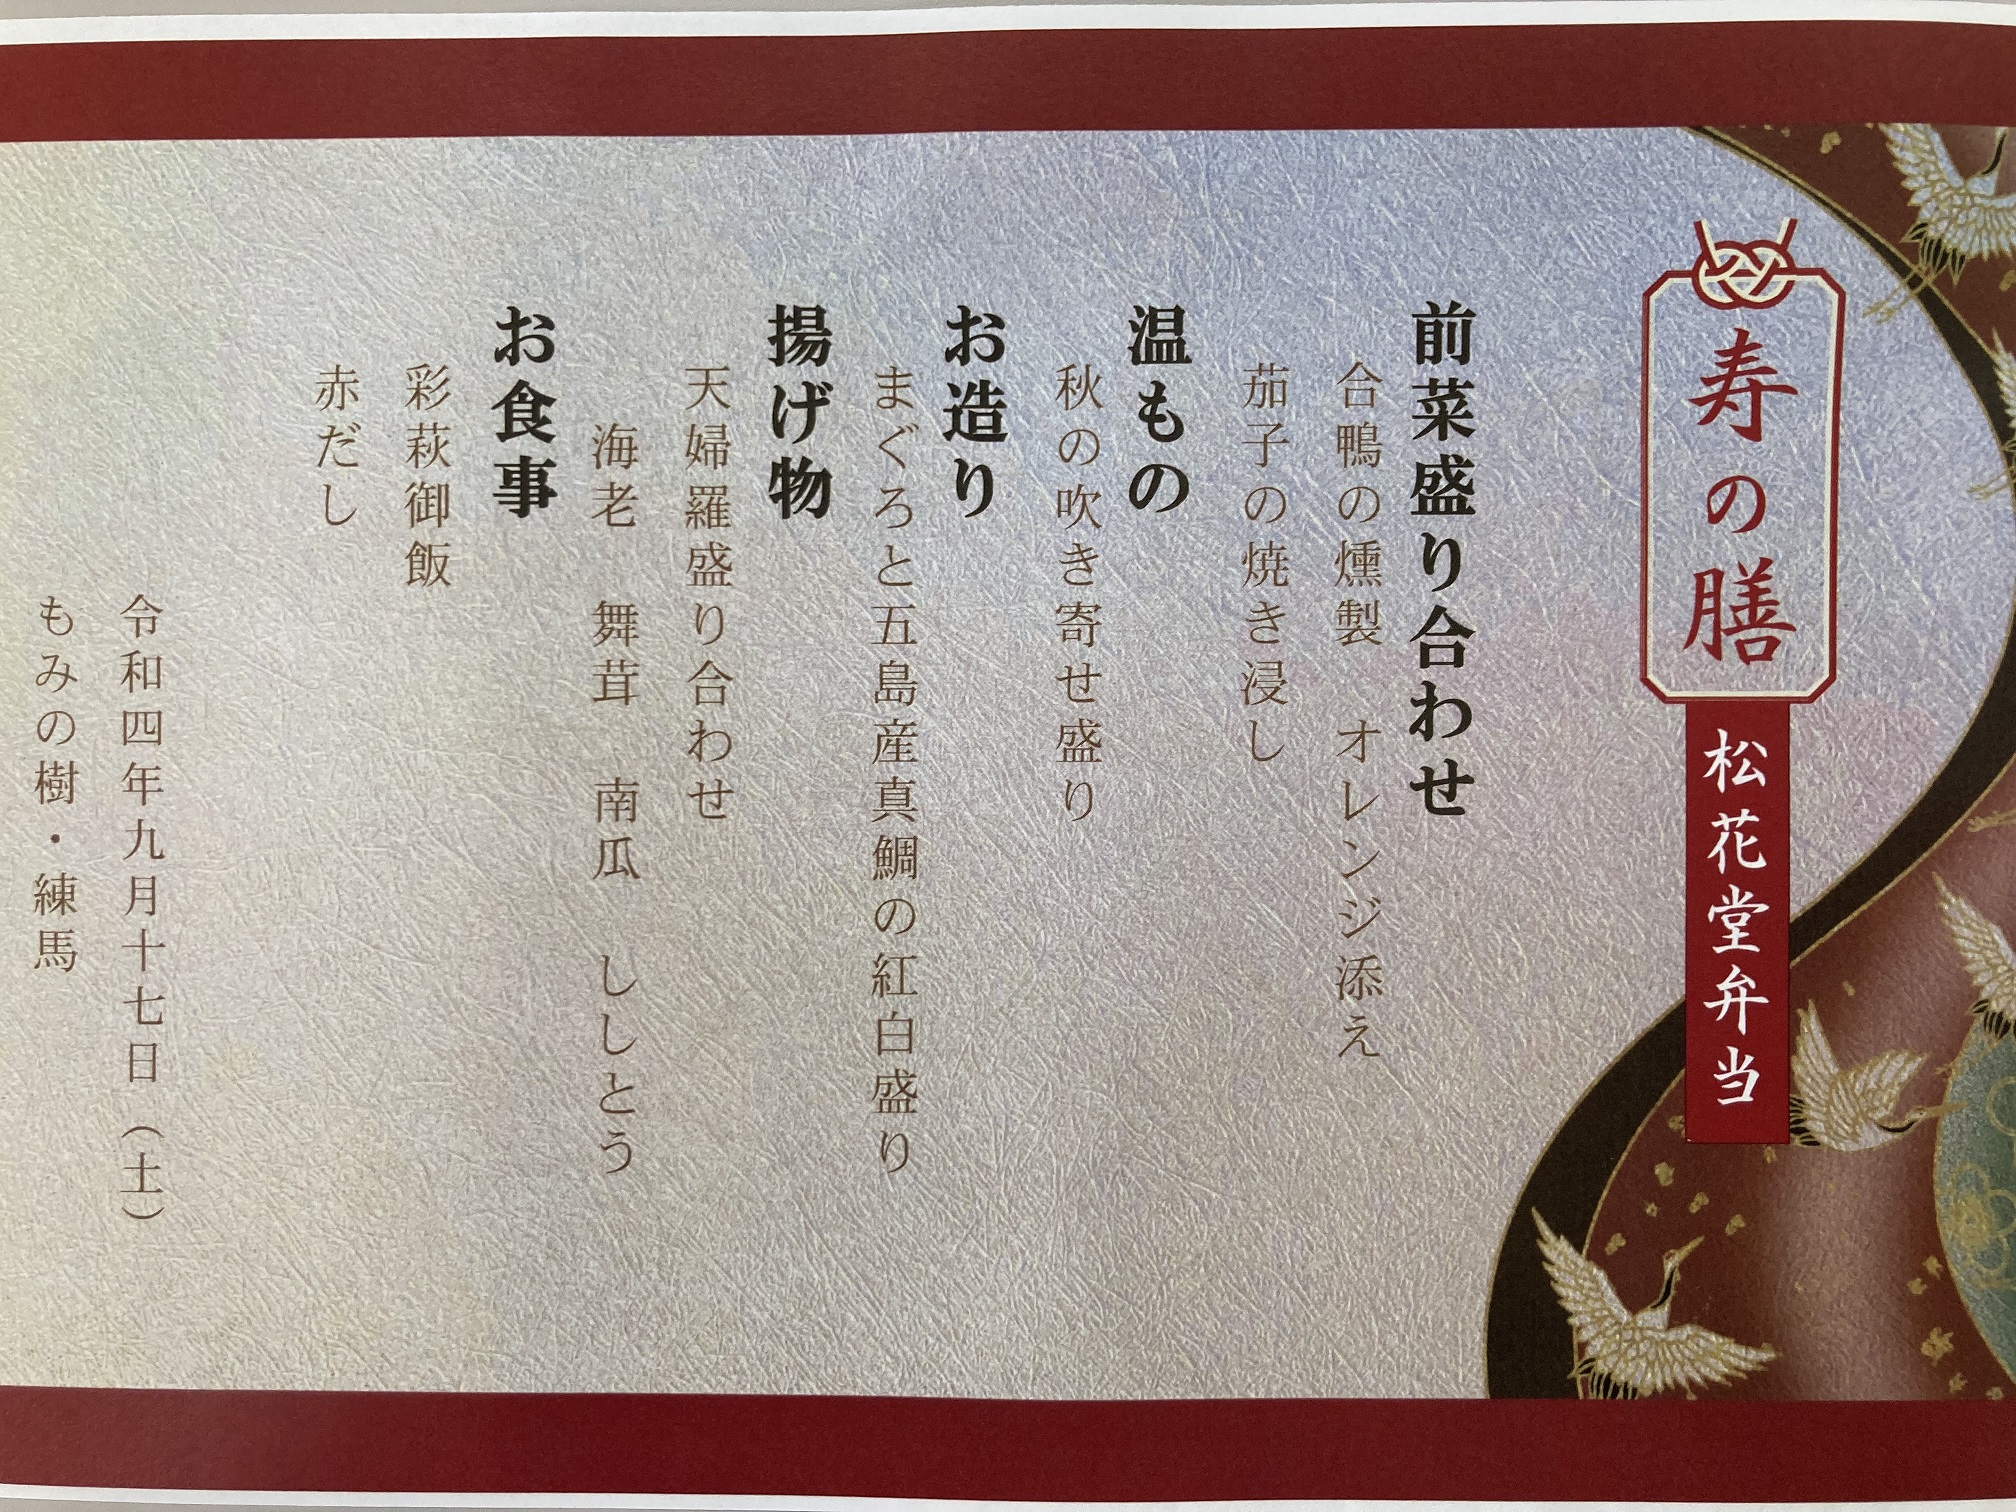 寿の膳
松花堂弁当
前菜盛り合わせ
合鴨の燻製　オレンジ添え
茄子の焼き浸し
温もの
秋の吹き寄せ盛り
お造り
まぐろと五島産真鯛の紅白盛り
揚げ物
天婦羅盛り合わせ
海老　舞茸　南瓜　ししとう
お食事
彩萩御飯
赤だし
令和四年九月十七日（土）
もみの樹・練馬